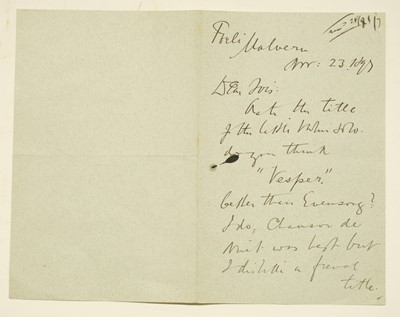 Forli
Malvern
Nov: 23. 1897
Dear Sirs:
As to the title
of the little Violin Solo.
do you think
"Vesper".
better than Evensong?
I do, Chanson de
Nuit was best but
I dislike a french
title.